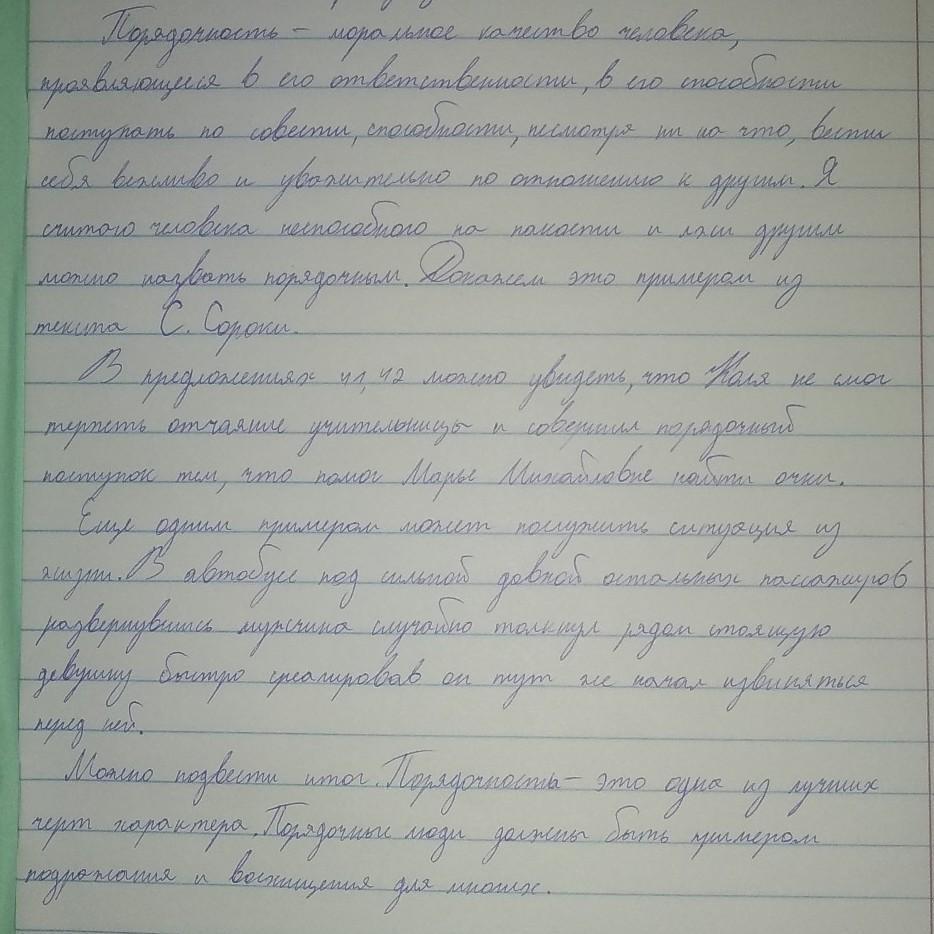 Порядочность – моральное качество человека,
проявляющееся в его ответственности, в его способности
поступать по совести, способности, несмотря ни на что, вести
себя вежливо и уважительно по отношению к другим. Я
считаю человека неспособного на пакости и лжи другим
можно назвать порядочным. Докажем это примером из
текста С. Сороки.
В предложениях 41, 42 можно увидеть, что Коля не смог
терпеть отчаяние учительницы и совершил порядочный
поступок тем, что помог Марье Михайловне найти очки.
Еще одним примером может послужить ситуация из
жизни. В автобусе под сильной давкой остальных пассажиров
развернувшись мужчина случайно толкнул рядом стоящую
девушку быстро среагировав он тут же начал извиняться
перед ней.
Можно подвести итог. Порядочность – это одна из лучших
черт характера. Порядочные люди должны быть примером
подражания и восхищения для многих.